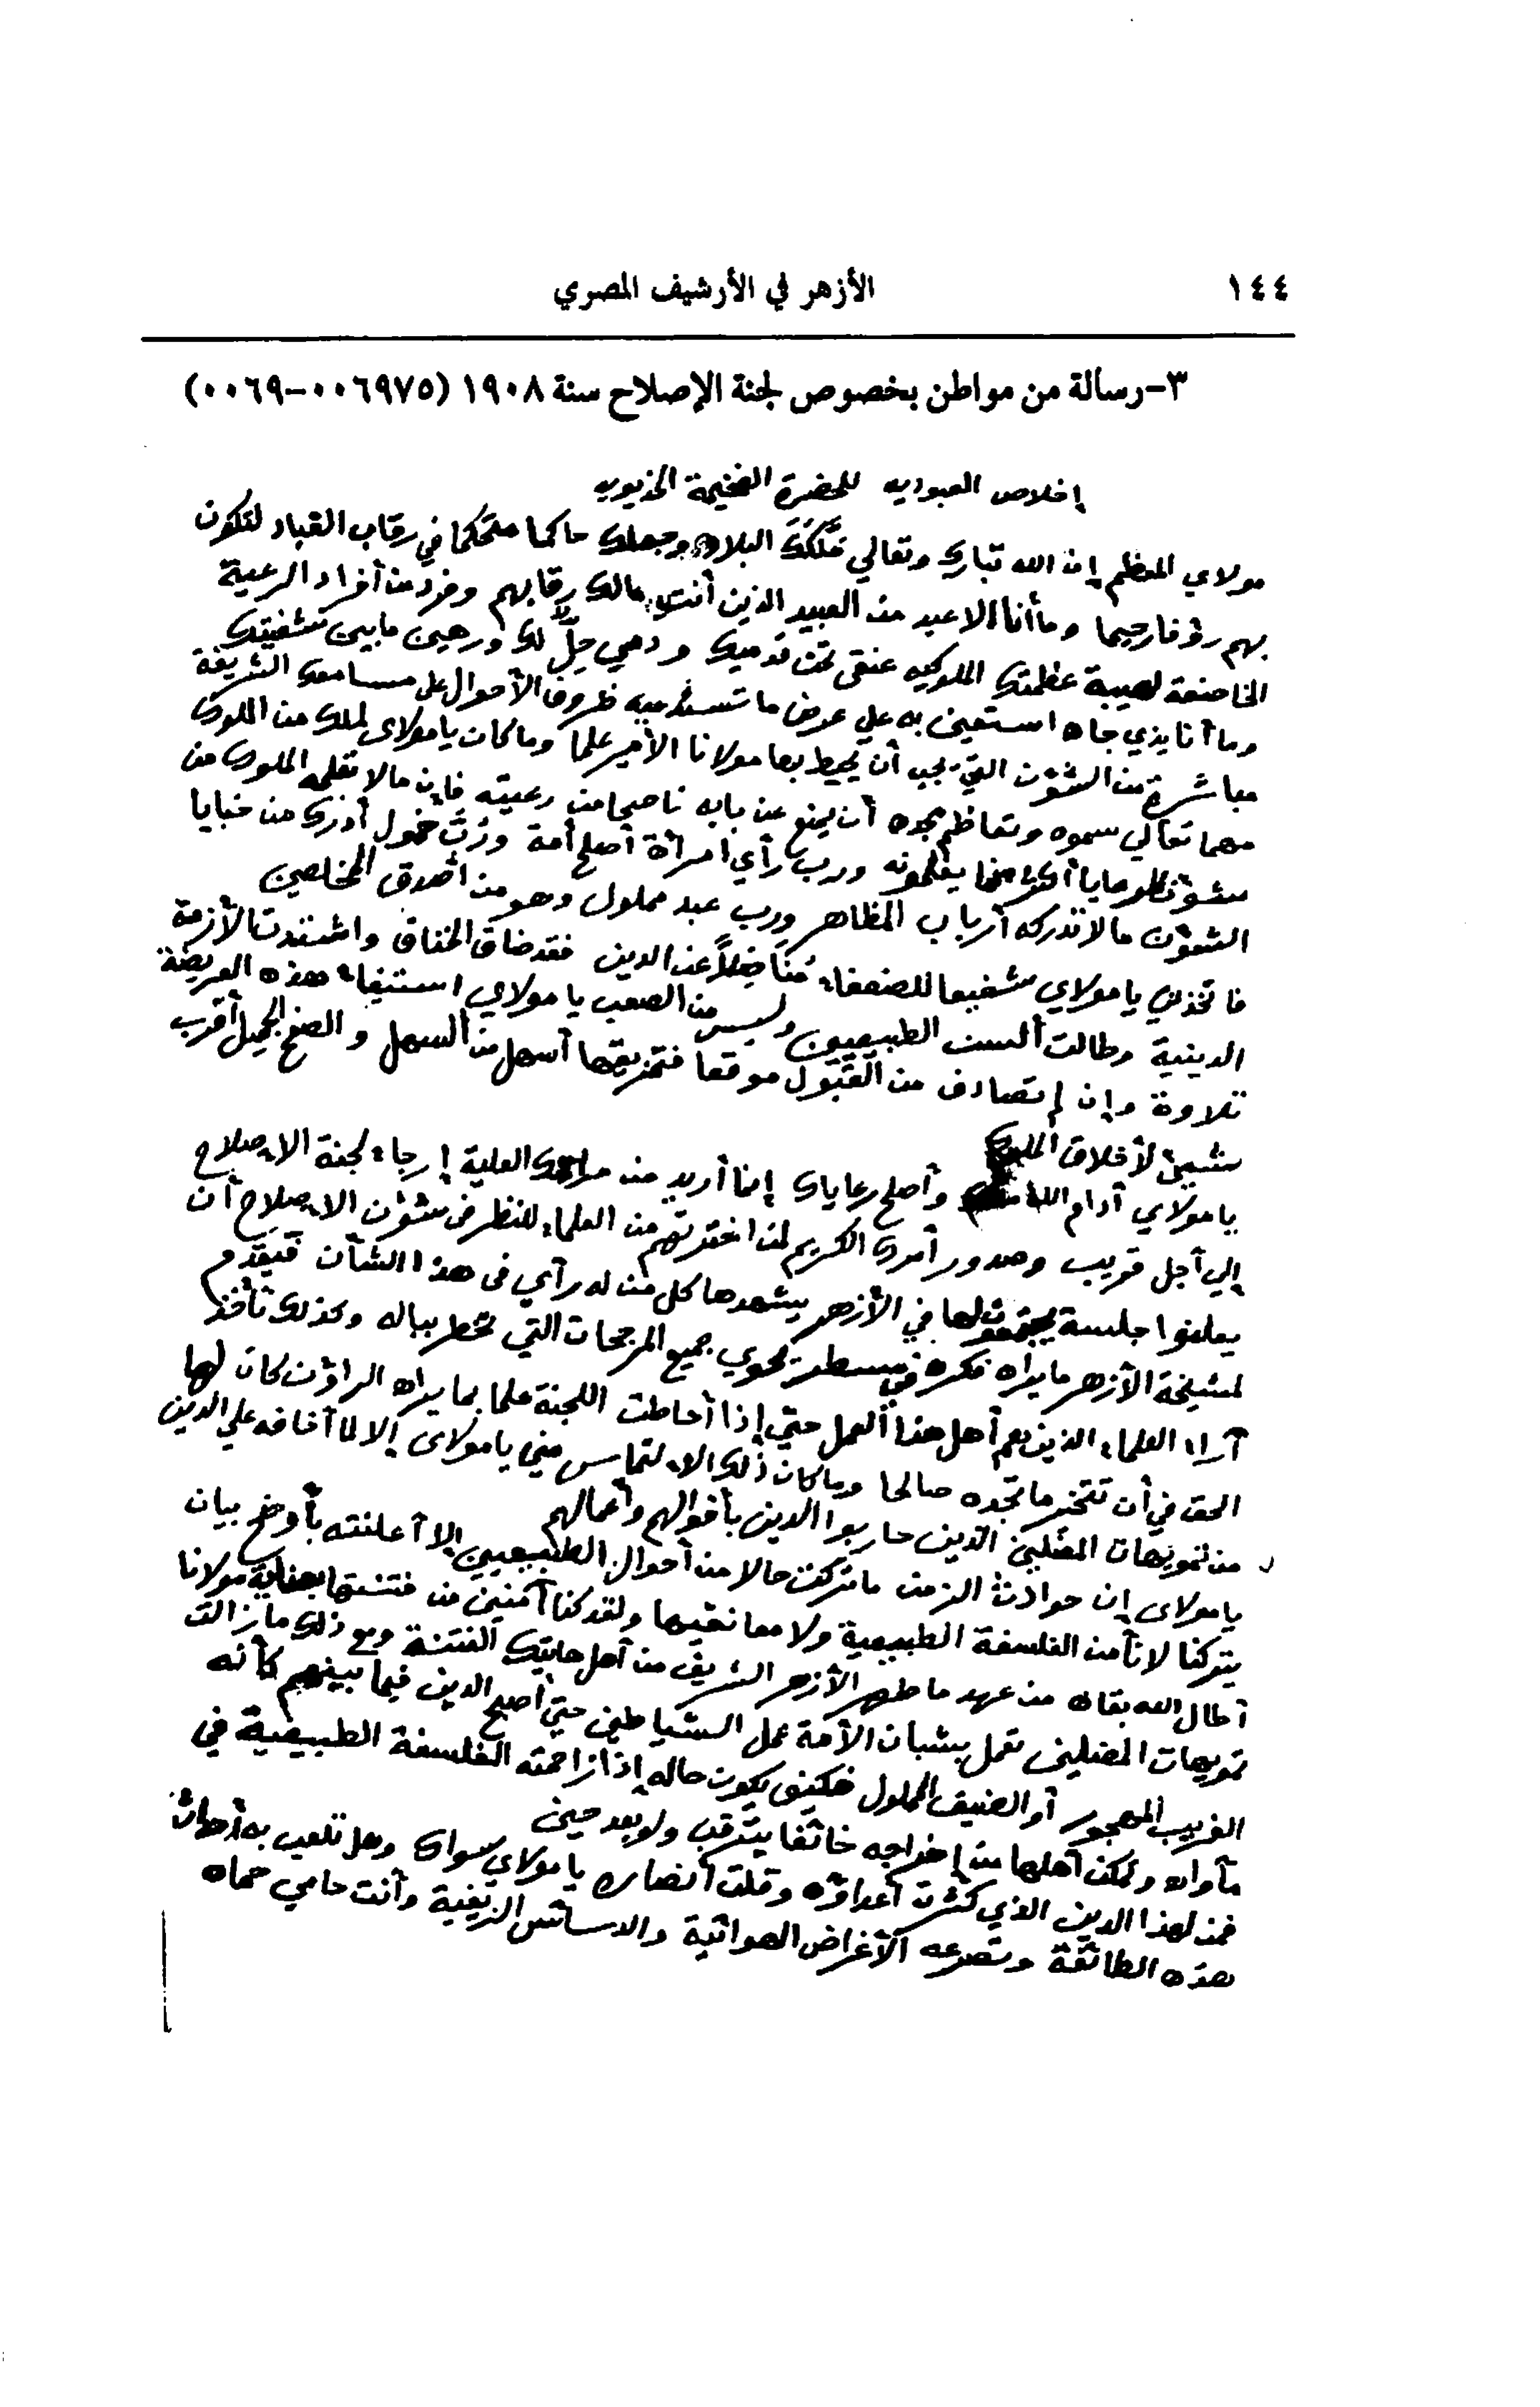 ١٤٤
الأزهر في الأرشيف المصري
٣-رسالة من مواطن بخصوص لجنة الإصلاح سنة ١٩٠٨ (٠٠٦٩٧٥-٠٠٦٩)
إخلاص العبوديه للحضرة الفخيمة الخديويه
مولاي المعظم إن الله تبارك وتعالي مَلَّكَكَ البلاد وجعلك حاكما متحكما في رقاب العباد لتكون
بهم رؤفا رحيما وما أنا الا عبد من العبيد الذين أنت مالك رقابهم وفرد من أفراد الرعية
الخاضعة لهيبة عظمتك الملوكيه عنقى تحت قدميك ودمي حِلٌّ لك ورهين ما بين شفتيك
وما أنا بذي جاه استعين به علي عرض ما تستدعيه ظروف الأحوال على مسامعك الشريفة
مباشرة من الشؤن التي يجب أن يحيط بها مولانا الأمير علما وما كان يا مولاى لملك من الملوك
مهما تعالي سموه وتعاظم مجده أن يمنع عن بابه ناصحا من رعيته فإن مالا تعلمه الملوك من
شؤن الرعايا أكثر مما يعلمونه ورب رأي امرأة أصلح أمة ورُبَّ خمول أدرك من خبايا
الشؤن مالا تدركه أرباب المظاهر ورب عبد مملول وهو من أصدق المخلصين
فاتخذني يا مولاي شفيعا للضعفاء مُنَاضِلاً عن الدين فقد ضاق الخناق واشتدت الأزمة
الدينية وطالت ألسن الطبيعيين وليس من الصعب يا مولاي استيفاء هذه العريضة
تلاوة وإن لم تصادف من القبول موقعا فتمزيقها أسهل من السهل والصفح الجميل أقرب
شيئ لأخلاق الملوك
يا مولاي أدام الله وأصلح رعاياك إنما أريد من مراحمك العلية إرجاء لجنة الاصلاح
إلي أجل قريب وصدور أمرك الكريم لمن اخترتهم من العلماء للنظر في شؤن الاصلاح أن
يعلنوا جلسة يجتمعون لها في الأزهر يشهدها كل من له رأي فى هذا الشأن فيقدم
لمشيخة الأزهر ما يراه فكره في مسطرة تحوي جميع المرجحات التي تخطر بباله وكذلك تأخذ
آراء العلماء الذين هم أهل هذا العمل حتي إذا أحاطت اللجنة علما بما يراه الراؤن كان لها
الحق في أن تتخير ما تجده صالحا وما كان ذلك الالتماس مني يا مولاى إلا لما أخافه علي الدين
من تمويهات المضلين الذين حاربوا الدين بأقوالهم وأعمالهم
يا مولاى إن حوادث الزمن ما تركت حالا من أحوال الطبيعيين إلا أعلنته بأوضح بيان
يتركنا لا نأمن الفلسفة الطبيعية ولا معانقيها ولقد كنا آمنين من فتنتها بعناية مولانا
أطال الله بقاه من عهد ما طهر الأزهر الشريف من أهل هاتيك الفتنة ومع ذلك ما زالت
تمويهات المضلين تعمل بشبان الأمة عمل الشياطين حتي أصبح الدين فيما بينهم كأنه
الغريب المهجور أو الضيف المملول فكيف يكون حاله إذا زاحمته الفلسفة الطبيعية في
مأواه وتمكن أهلها من إخراجه خائفا يترقب ولو بعد حين
فمن لهذا الدين الذي كثرت أعداؤه وقلت أنصاره يا مولاي سواك وهل تلعب به أحداث
هذه الطائفة وتصرعه الأغراض الهوائية والدسائس الزيفية وأنت حامي حماه